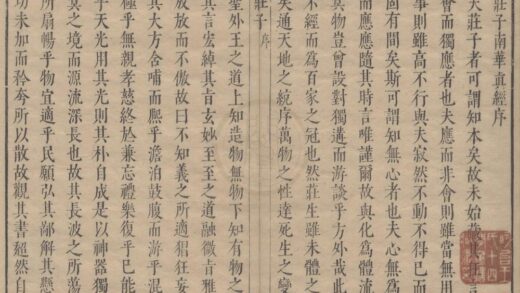 莊子南華真經序
夫莊子者可謂知本矣故未始藏其狂
會而獨應者也夫應而非會則雖當無用
事則雖高不行與夫寂然不動不得已而
固有間矣斯可謂知無心者也夫心無為
而應應隨其時言唯謹爾故與化為體流
冥物豈曾設對獨遘而游談乎方外哉此
不經而為百家之冠也然莊生雖未體之
矣通天地之統序萬物之性達死生之變
莊子 序
聖外王之道上知造物無物下知有物之
其言宏綽其旨玄妙至至之道融微旨雅
放放而不傲故曰不知義之所適猖狂妄
其大方含哺而熙乎澹泊鼓腹而游乎混
極乎無親孝慈終於兼忘禮樂復乎已能
乎天光用其光則其朴自成是以神器獨
冥之境而源流深長也故其長波之所蕩
所扇暢乎物宜適乎民願弘其鄙解其懸
功未加而矜夸所以散故觀其書超然自